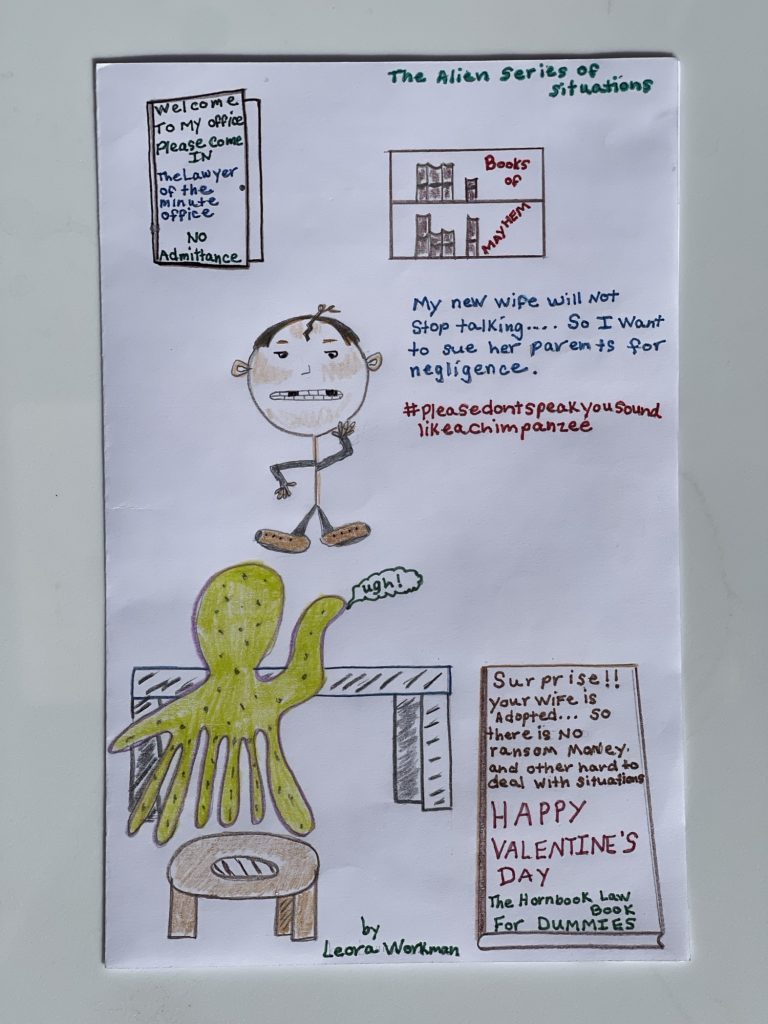 The Alien Series of
Situations
Welcome
To My office
Please Come
IN
The Lawyer
of the
minute
office
No
Admittance
Books
of
MAYHEM
My new wife will Not
Stop talking.... So I Want
to sue her parents for
negligence.
#pleasedontspeakyousound
likeachimpanzee
ugh!
Surprise!!
your wife is
Adopted... so
there is No
ransom Money.
and other hard to
deal with situations
HAPPY
VALENTINE'S
DAY
The Hornbook Law
Book
For DUMMIES
by
Leora Workman